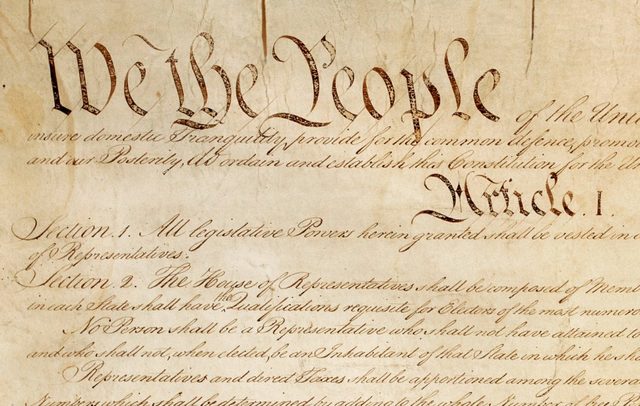 We the People of the Uni
insure domestic Tranquility, provide for the common defence, promo
and our Posterity, do ordain and establish this Constitution for the
Article. I.
Section. 1. All legislative Powers herein granted shall be vested in a
of Representatives.
Section. 2. The House of Representatives shall be composed of Memb
in each State shall have the Qualifications requisite for Electors of the most numero
No Person shall be a Representative who shall not have attained to
and who shall not, when elected, be an Inhabitant of that State in which he sha
Representatives and direct Taxes shall be apportioned among the severa
Numbers, which shall be determined by adding to the whole Number of